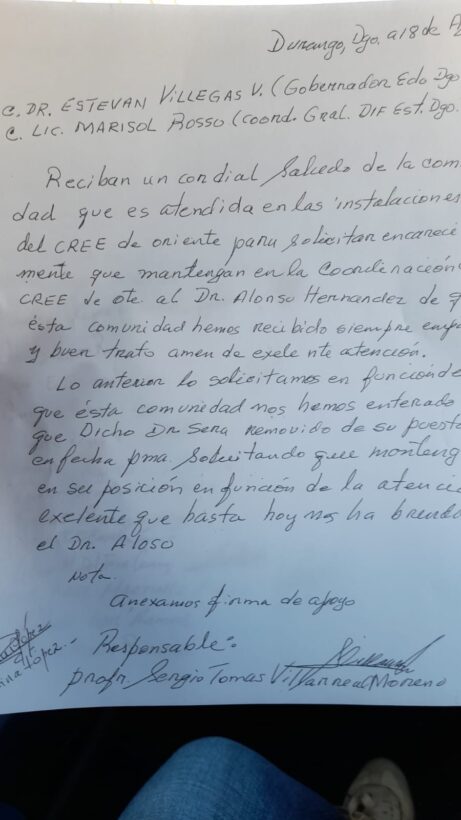 Durango, Dgo. a 18 de A
C. DR. ESTEVAN VILLEGAS V. (Gobernador Edo Dgo
C. LIC. MARISOL ROSSO (coord. Gral. DIF Est. Dgo.
Reciban un cordial Saludo de la com
dad que es atendida en las instalaciones
del CREE de oriente para solicitar encareci
mente que mantengan en la Coordinación
CREE de ote. al Dr. Alonso Hernandez de q
ésta comunidad hemos recibido siempre emp
y buen trato amen de exele nte atención.
Lo anterior lo solicitamos en función de
que ésta comunidad nos hemos enterado
que Dicho Dr Sera removido de su puesto
en fecha pma. Solicitando que manteng
en su posición en función de la atenció
exelente que hasta hoy nos ha brenda
el Dr. Aloso
Nota.
Anexamos firma de apoyo
Responsable:
Lopez.-
profr. Sergio Tomas Villarreal Moreno